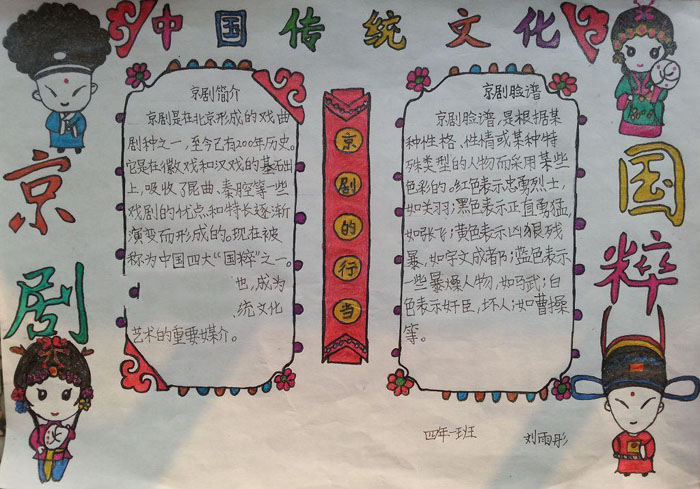 中国传统文化
京剧
国粹
京剧简介
京剧是在北京形成的戏曲
剧种之一,至今已有200年历史。
它是在徽戏和汉戏的基础
上,吸收了昆曲、秦腔等一些
戏剧的优点和特长逐渐
演变而形成的。现在被
称为中国四大“国粹”之一。
也,成为
统文化
艺术的重要媒介。
京剧的行当
京剧脸谱
京剧脸谱,是根据某
种性格、性情或某种特
殊类型的人物而采用某些
色彩的。红色表示忠勇烈士,
如关羽;黑色表示正直勇猛,
如张飞;黄色表示凶狠残
暴,如宇文成者;蓝色表示
一些暴燥人物,如马武;白
色表示奸臣,坏人;如曹操
等。
四年一班 刘雨彤